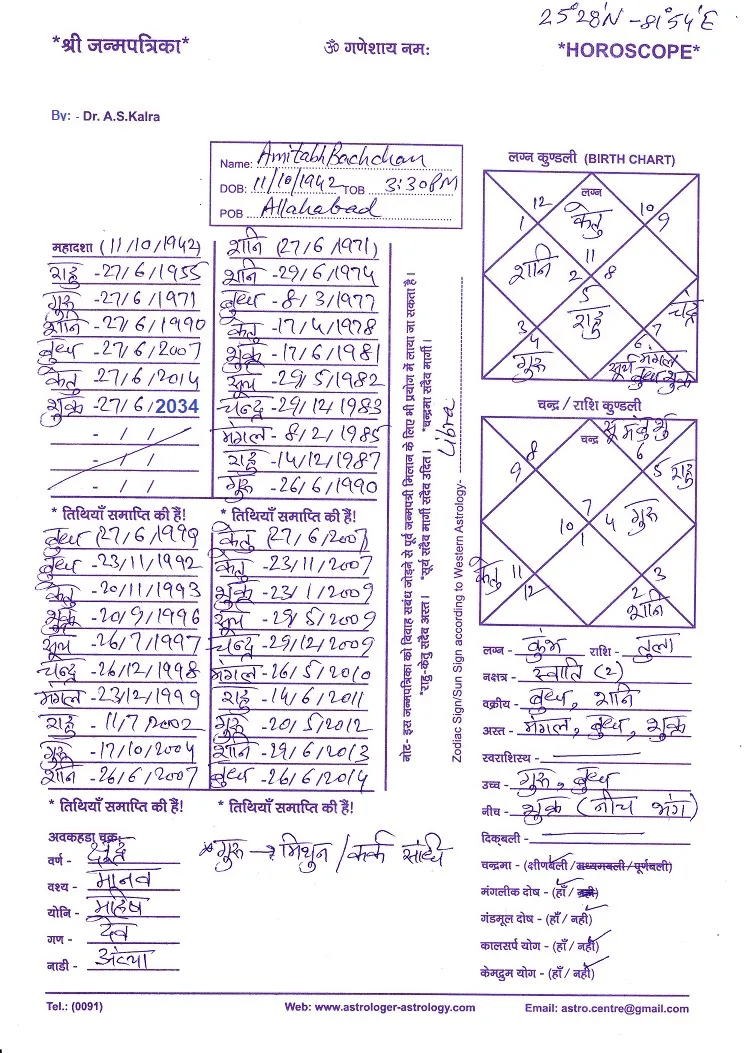 25°28'N - 81°54'E
*श्री जन्मपत्रिका*
ॐ गणेशाय नम:
*HOROSCOPE*
By: - Dr. A.S.Kalra
Name: Amitabh Bachchan
DOB: 11/10/1942 TOB 3:30 PM
POB Allahabad
महादशा (11/10/1942)
राहु -27/6/1955
गुरू -27/6/1971
शनि -27/6/1990
बुध -27/6/2007
केतु -27/6/2014
शुक्र -27/6/2034
- / /
- / /
- / /
* तिथियाँ समाप्ति की हैं!
शनि (27/6/1971)
शनि -29/6/1974
बुध -8/3/1977
केतु -17/4/1978
शुक्र -17/6/1981
सूर्य -29/5/1982
चन्द्र -29/12/1983
मंगल -8/2/1985
राहु -14/12/1987
गुरू -26/6/1990
* तिथियाँ समाप्ति की हैं!
बुध -23/11/1992
केतु -20/11/1993
शुक्र -20/9/1996
सूर्य -26/7/1997
चन्द्र -26/12/1998
मंगल -23/12/1999
राहु -11/7/2002
गुरू -17/10/2004
शनि -26/6/2007
* तिथियाँ समाप्ति की हैं!
केतु (27/6/2007)
केतु -23/11/2007
शुक्र -23/1/2009
सूर्य -29/5/2009
चन्द्र -29/12/2009
मंगल -26/5/2010
राहु -14/6/2011
गुरू -20/5/2012
शनि -29/6/2013
बुध -26/6/2014
* तिथियाँ समाप्ति की हैं!
नोट- इस जन्मपत्रिका को विवाह सबंध जोड़ने से पूर्व जन्मपत्री मिलान के लिए भी प्रयोग में लाया जा सकता है।
*राहु-केतु सदैव अस्त। *सूर्य सदैव मार्गी सदैव उदित। *चन्द्रमा सदैव मार्गी।
Zodiac Sign/Sun Sign according to Western Astrology- Libra
लग्न कुण्डली (BIRTH CHART)
12 लग्न 10
1 केतु 9
शनि 11
2 8
5
राहु चंद्र
3 7
4 6
गुरू सूर्य मंगल
बुध शुक्र
चन्द्र / राशि कुण्डली
8 चन्द्र सू मं बु शु
9 6
5 राहु
7
10 4 गुरू
1
केतु 11 3
12 2
शनि
लग्न - कुंभ राशि - तुला
नक्षत्र - स्वाति (2)
वक्रीय - बुध, शनि
अस्त - मंगल, बुध, शुक्र
स्वराशिस्थ -
उच्च - गुरू, बुध
नीच - शुक्र (नीच भंग)
दिक्बली -
चन्द्रमा - (क्षीणबली / मध्यमबली / पूर्णबली)
मंगलीक दोष - (हाँ / नही)
गंडमूल दोष - (हाँ / नही)
कालसर्प योग - (हाँ / नही)
केमद्रुम योग - (हाँ / नही)
अवकहडा चक्र
वर्ण - शूद्र
वश्य - मानव
योनि - महिष
गण - देव
नाडी - अंत्या
* गुरू → मिथुन / कर्क संधि
Tel.: (0091)
Web: www.astrologer-astrology.com
Email: astro.centre@gmail.com